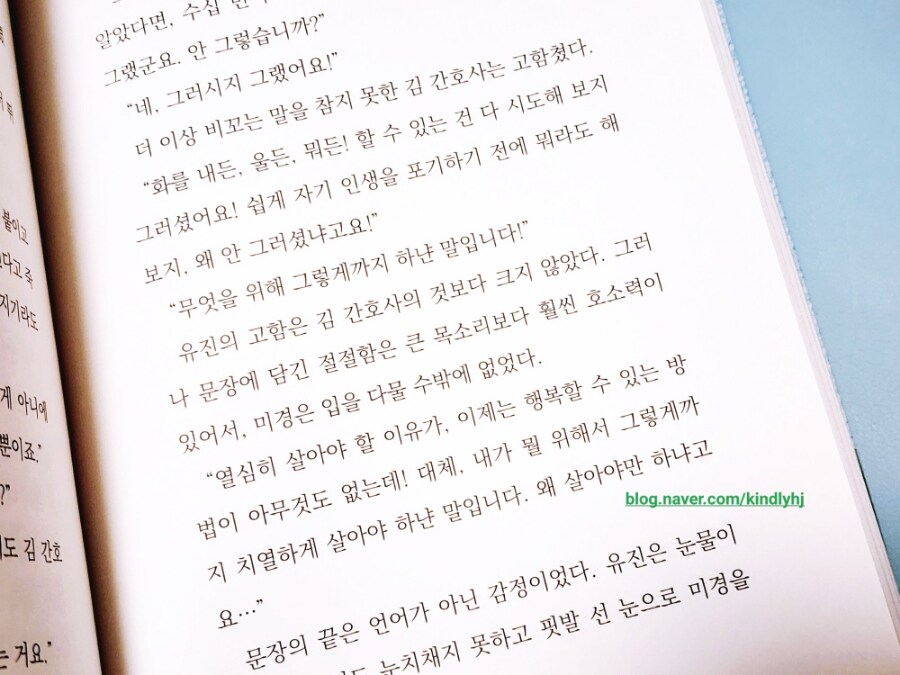 붙이고
지기라도
게 아니에
뿐이죠."
도 김 간호
는 거요."
알았다면, 수십
그랬군요. 안 그렇습니까?"
"네, 그러시지 그랬어요!"
더 이상 비꼬는 말을 참지 못한 김 간호사는 고함쳤다.
"화를 내든, 울든, 뭐든! 할 수 있는 건 다 시도해 보지
그러셨어요! 쉽게 자기 인생을 포기하기 전에 뭐라도 해
보지, 왜 안 그러셨냐고요!"
"무엇을 위해 그렇게까지 하냔 말입니다!"
유진의 고함은 김 간호사의 것보다 크지 않았다. 그러
나 문장에 담긴 절절함은 큰 목소리보다 훨씬 호소력이
있어서, 미경은 입을 다물 수밖에 없었다.
"열심히 살아야 할 이유가, 이제는 행복할 수 있는 방
법이 아무것도 없는데! 대체, 내가 뭘 위해서 그렇게까
지 치열하게 살아야 하냔 말입니다. 왜 살아야만 하냐고
요…"
문장의 끝은 언어가 아닌 감정이었다. 유진은 눈물이
눈치채지 못하고 핏발 선 눈으로 미경을
blog.naver.com/kindlyhj